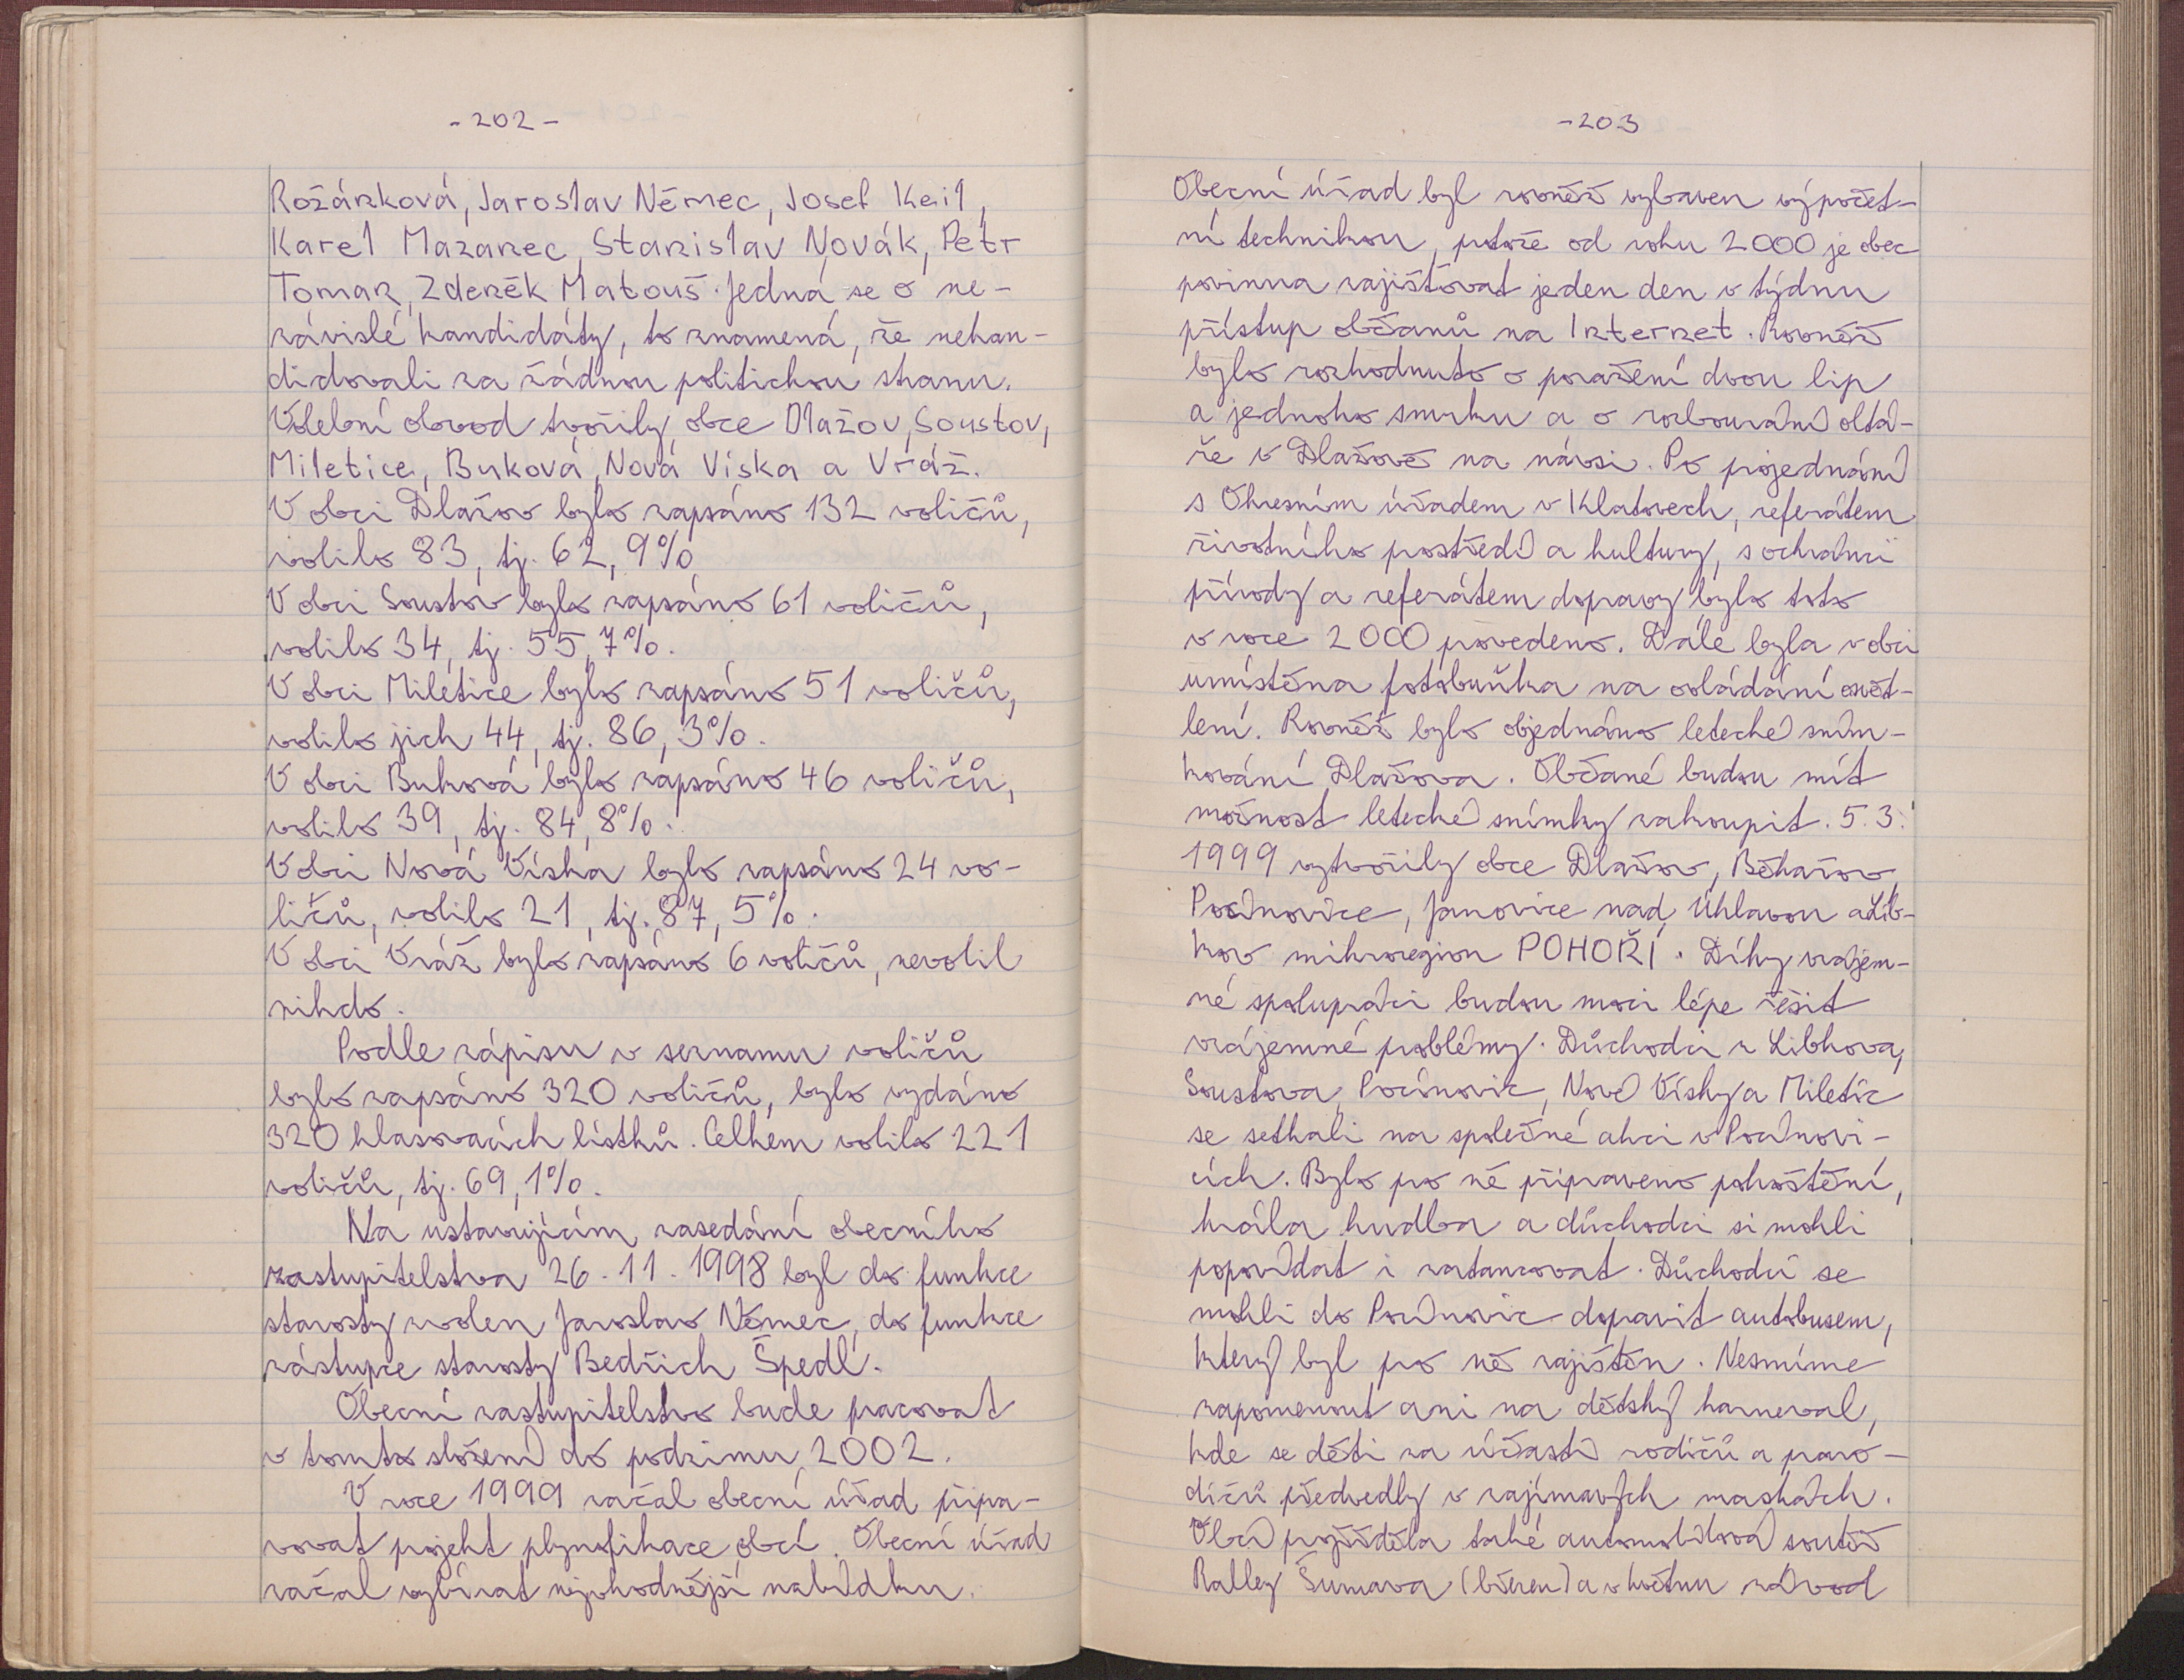 - 202 -
Rožánková, Jaroslav Němec, Josef Keil,
Karel Mazanec, Stanislav Novák, Petr
Toman, Zdeněk Matouš. Jedná se o ne-
závislé kandidáty, to znamená, že nekan-
didovali za žádnou politickou stranu.
Volební obvod tvořily obce Dlažov, Soustov,
Miletice, Buková, Nová Víska a Vráž.
V obci Dlažov bylo zapsáno 132 voličů,
volilo 83, tj. 62,9%
V obci Soustov bylo zapsáno 61 voličů,
volilo 34, tj. 55,7%.
V obci Miletice bylo zapsáno 51 voličů,
volilo jich 44, tj. 86,3%.
V obci Buková bylo zapsáno 46 voličů,
volilo 39, tj. 84,8%.
V obci Nová Víska bylo zapsáno 24 vo-
ličů, volilo 21, tj. 87,5%.
V obci Vráž bylo zapsáno 6 voličů, nevolil
nikdo.
Podle zápisu v seznamu voličů
bylo zapsáno 320 voličů, bylo vydáno
320 hlasovacích lístků. Celkem volilo 221
voličů, tj. 69,1%.
Na ustavujícím zasedání obecního
zastupitelstva 26.11.1998 byl do funkce
starosty zvolen Jaroslav Němec, do funkce
zástupce starosty Bedřich Špedl.
Obecní zastupitelstvo bude pracovat
v tomto složení do podzimu 2002.
V roce 1999 začal obecní úřad připra-
vovat projekt plynofikace obcí. Obecní úřad
začal vybírat nejvhodnější nabídku.
- 203
Obecní úřad byl rovněž vybaven výpočet-
ní technikou, protože od roku 2000 je obec
povinna zajišťovat jeden den v týdnu
přístup občanů na Internet. Rovněž
bylo rozhodnuto o poražení dvou lip
a jednoho smrku a o rozbourání oltá-
ře v Dlažově na návsi. Po projednání
s Okresním úřadem v Klatovech, referátem
životního prostředí a kultury, s ochránci
přírody a referátem dopravy bylo toto
v roce 2000 provedeno. Dále byla v obci
umístěna fotobuňka na ovládání osvět-
lení. Rovněž bylo objednáno letecké sním-
kování Dlažova. Občané budou mít
možnost letecké snímky zakoupit. 5.3.
1999 vytvořily obce Dlažov, Běhařov,
Pocinovice, Janovice nad Úhlavou a Lib-
kov mikroregion POHOŘÍ. Díky vzájem-
né spolupráci budou moci lépe řešit
vzájemné problémy. Důchodci z Libkova,
Soustova, Pocinovic, Nové Vísky a Miletic
se setkali na společné akci v Pocinovi-
cích. Bylo pro ně připraveno pohoštění,
hrála hudba a důchodci si mohli
popovídat i zatancovat. Důchodci se
mohli do Pocinovic dopravit autobusem,
který byl pro ně zajištěn. Nesmíme
zapomenout ani na dětský karneval,
kde se děti za účasti rodičů a praro-
dičů předvedly v zajímavých maskách.
Obcí projížděla také automobilová soutěž
Ralley Šumava (březen) a v květnu závod